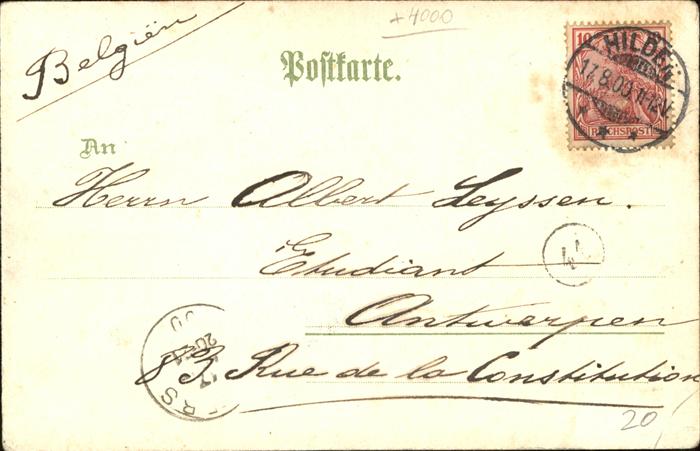 Belgiën
+4000
Postkarte.
10
HILDEN
17.8.00.11-12V.
REICHSPOST
An
Herrn Albert Leyssen.
Etudiant
Antwerpen
83 Rue de la Constitution
20